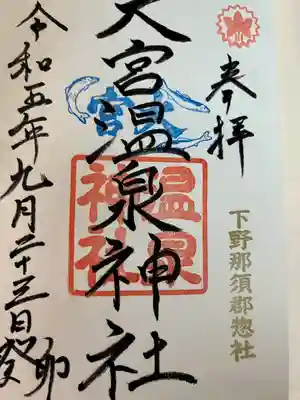 下野那須郡惣社
奉拝
大宮温泉神社
温泉
神社
令和五年九月二十三日
癸卯